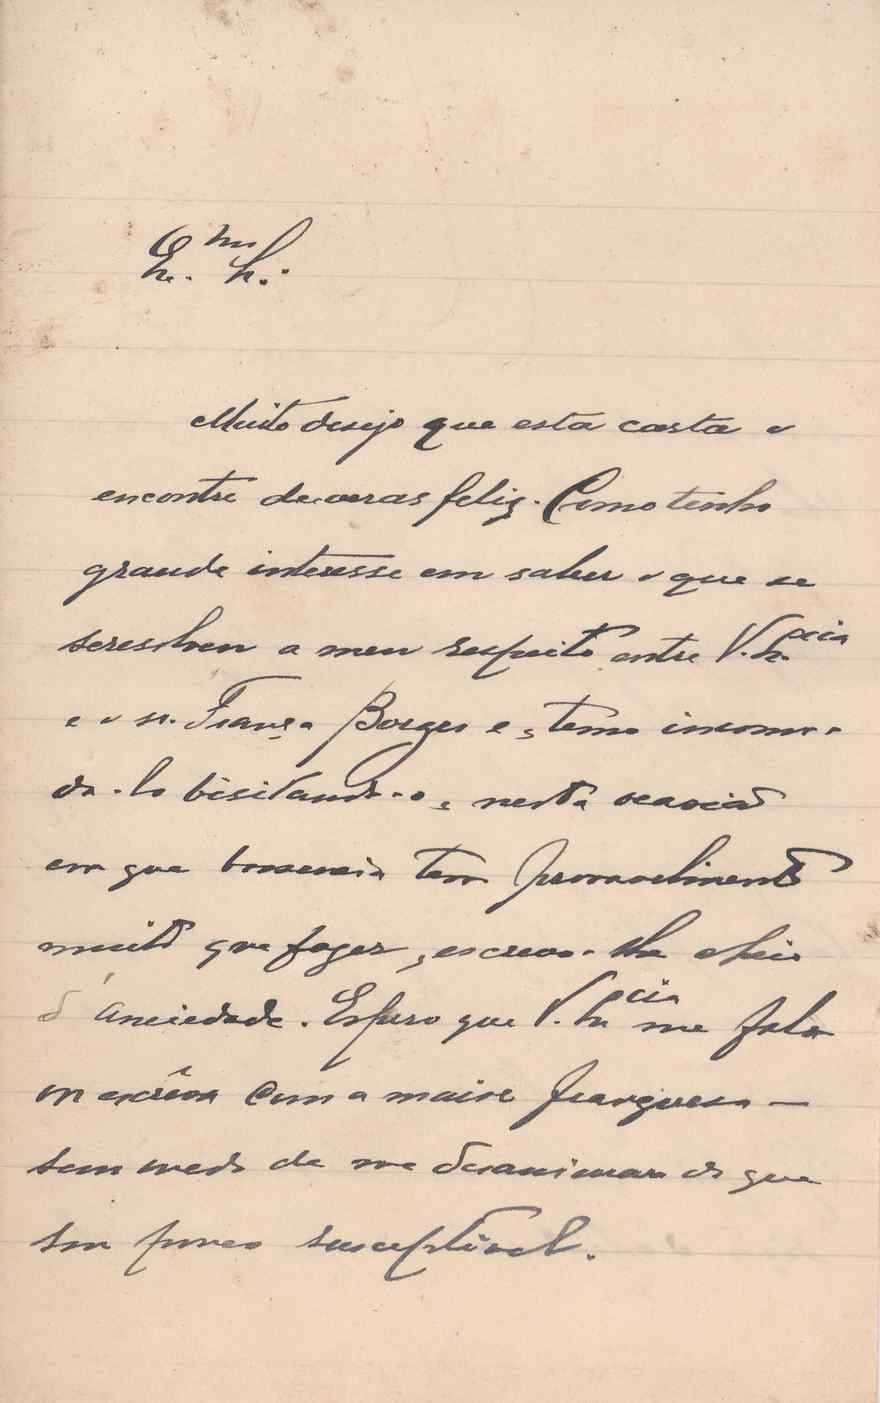 Ex.mo Sr.:
Muito desejo que esta carta o
encontre de veras feliz. Como tenho
grande interesse em saber o que se
se resolveu a meu respeito entre V. Ex.cia
e o sr. França Borges e, temo incomo-
da-lo bisitando-o, nesta
em que bossencia tem provavelmente
muito que fazer, escrevo-lhe cheio
d'anciedade. Espero que V. Ex.cia me fale
ou escrêva com a maior franqueza —
sem medo de me desanimar do que
sou pouco susceptível.